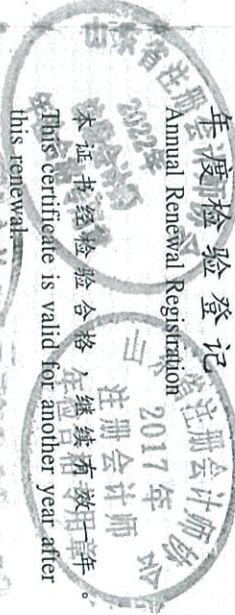 年度检验登记
Annual Renewal Registration
本证书经检验合格，继续有效一年。
This certificate is valid for another year after
this renewal.
省注册会计师
2022年
省注册会计师协会
2017年
注册会计师
年检合格专用章